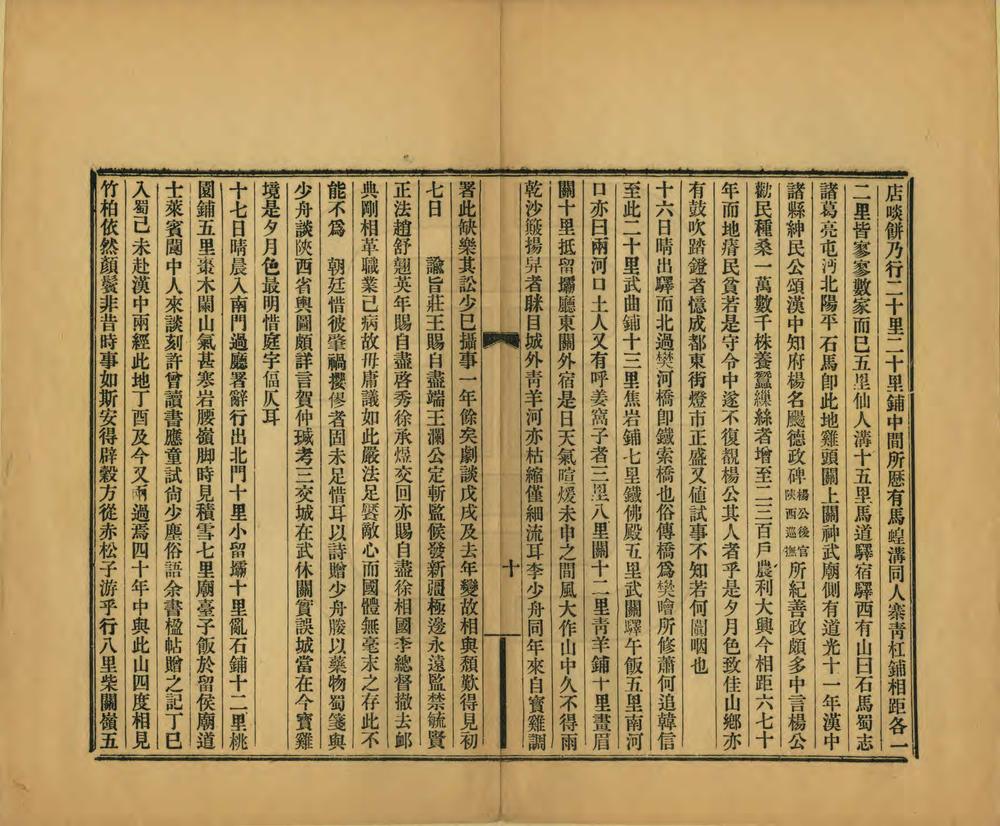 店啖餅乃行二十里二十里鋪中間所歷有馬蝗溝同人寨靑杠鋪相距各一
二里皆寥寥數家而已五里仙人溝十五里馬道驛宿驛西有山曰石馬蜀志
諸葛亮屯沔北陽平石馬卽此地雞頭關上關神武廟側有道光十一年漢中
諸縣紳民公頌漢中知府楊名颺德政碑楊公後官陜西巡撫所紀善政頗多中言楊公
勸民種桑一萬數千株養蠶繅絲者增至二三百戶農利大興今相距六七十
年而地瘠民貧若是守令中遂不復覩楊公其人者乎是夕月色致佳山鄉亦
有鼓吹踏鐙者憶成都東街燈市正盛又値試事不知若何闐咽也
十六日晴出驛而北過樊河橋卽鐵索橋也俗傳橋爲樊噲所修蕭何追韓信
至此二十里武曲鋪十三里焦岩鋪七里鐵佛殿五里武關驛午飯五里南河
口亦曰兩河口土人又有呼姜窩子者三里八里關十二里靑羊鋪十里畫眉
關十里抵留壩廳東關外宿是日天氣暄煖未申之間風大作山中久不得雨
乾沙簸揚舁者眯目城外靑羊河亦枯縮僅細流耳李少舟同年來自寶雞調
十
署此缺樂其訟少已攝事一年餘矣劇談戊戌及去年變故相與頽歎得見初
七日　諭旨莊王賜自盡端王瀾公定斬監候發新疆極邊永遠監禁毓賢
正法趙舒翹英年賜自盡啓秀徐承煜交回亦賜自盡徐相國李總督撤去卹
典剛相革職業已病故毋庸議如此嚴法足饜敵心而國體無毫末之存此不
能不爲　朝廷惜彼肇禍攖僇者固未足惜耳以詩贈少舟賸以藥物蜀箋與
少舟談陜西省輿圖頗詳言賀仲瑊考三交城在武休關實誤城當在今寶雞
境是夕月色最明惜庭宇偪仄耳
十七日晴晨入南門過廳署辭行出北門十里小留壩十里亂石鋪十二里桃
園鋪五里棗木闌山氣甚寒岩腰嶺脚時見積雪七里廟臺子飯於留侯廟道
士萊賓閬中人來談刻許曾讀書應童試尙少塵俗語余書楹帖贈之記丁巳
入蜀己未赴漢中兩經此地丁酉及今又兩過焉四十年中與此山四度相見
竹柏依然顏鬢非昔時事如斯安得辟穀方從赤松子游乎行八里柴關嶺五